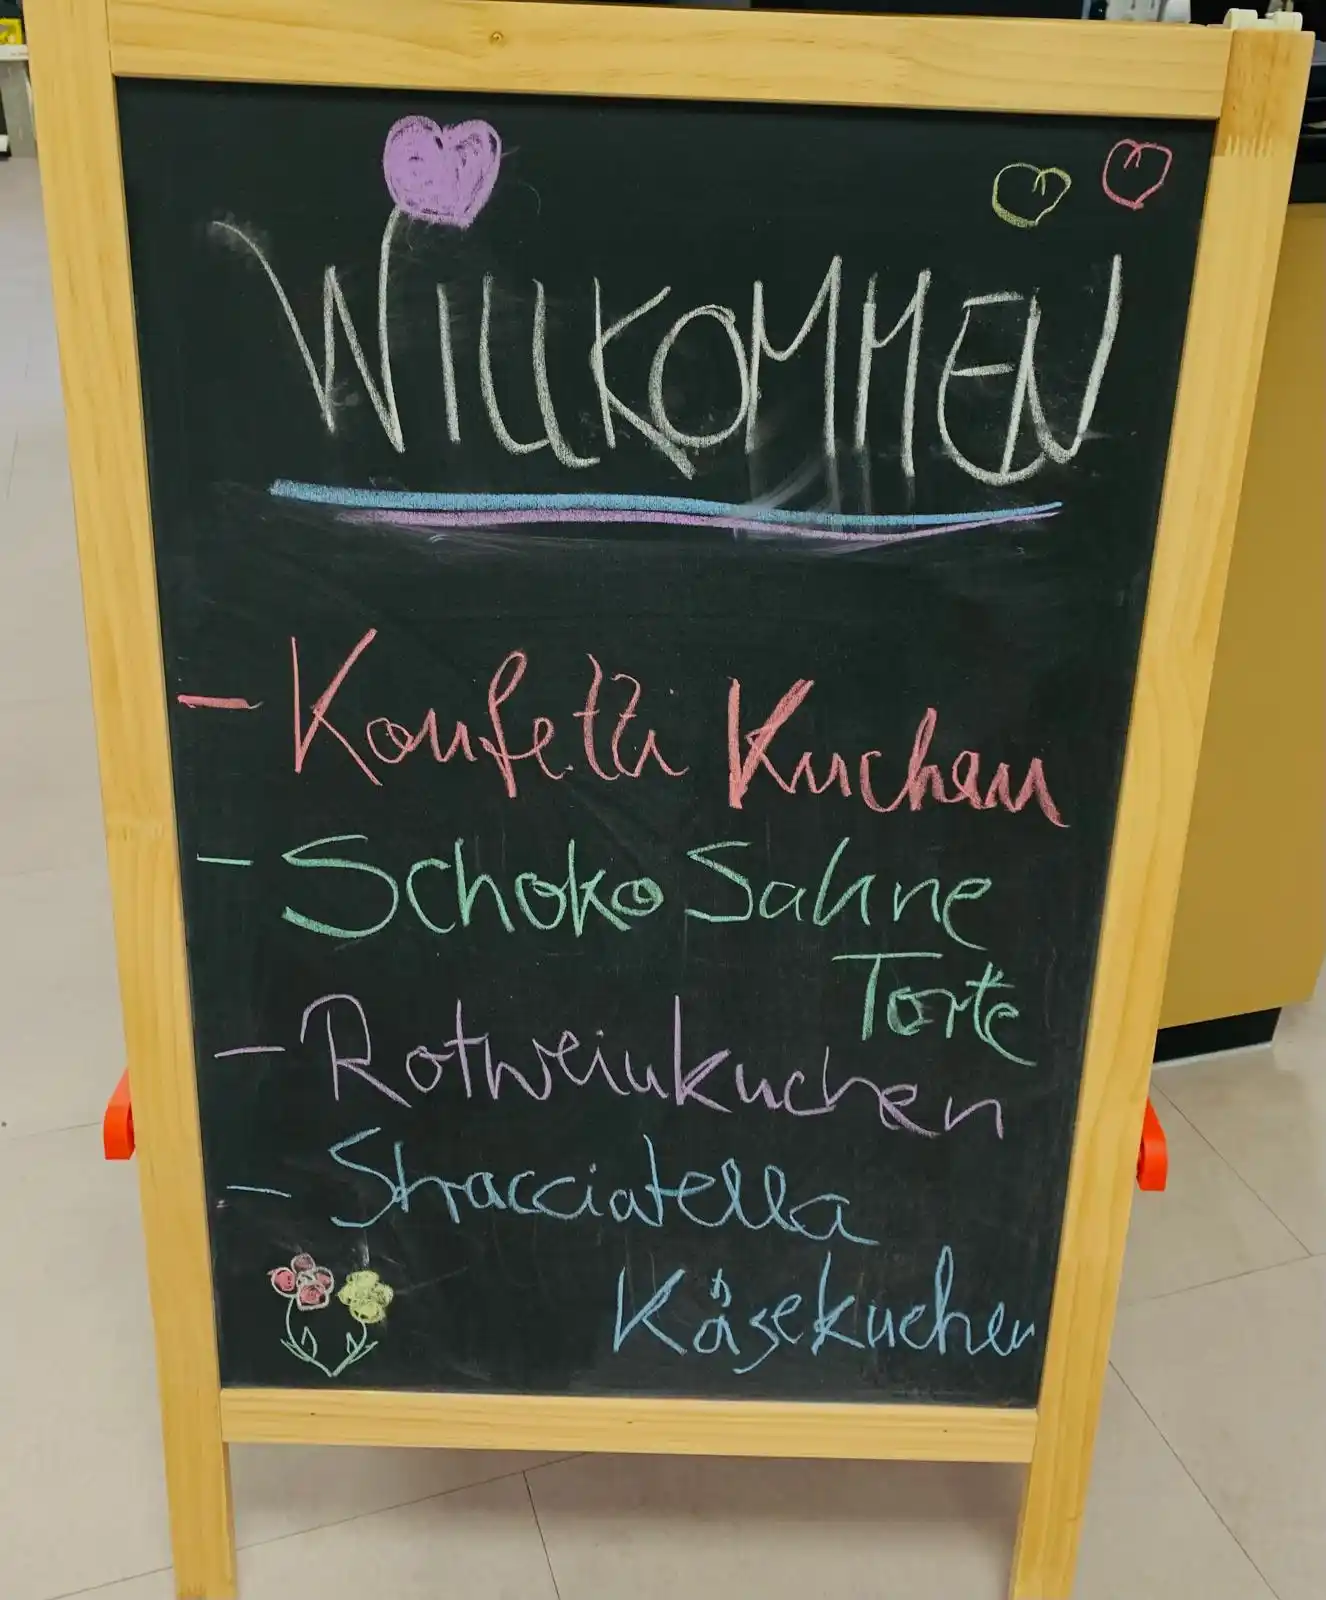 WILLKOMMEN
- Konfetti Kuchen
- Schoko Sahne
Torte
- Rotweinkuchen
- Stracciatella
Käsekuchen